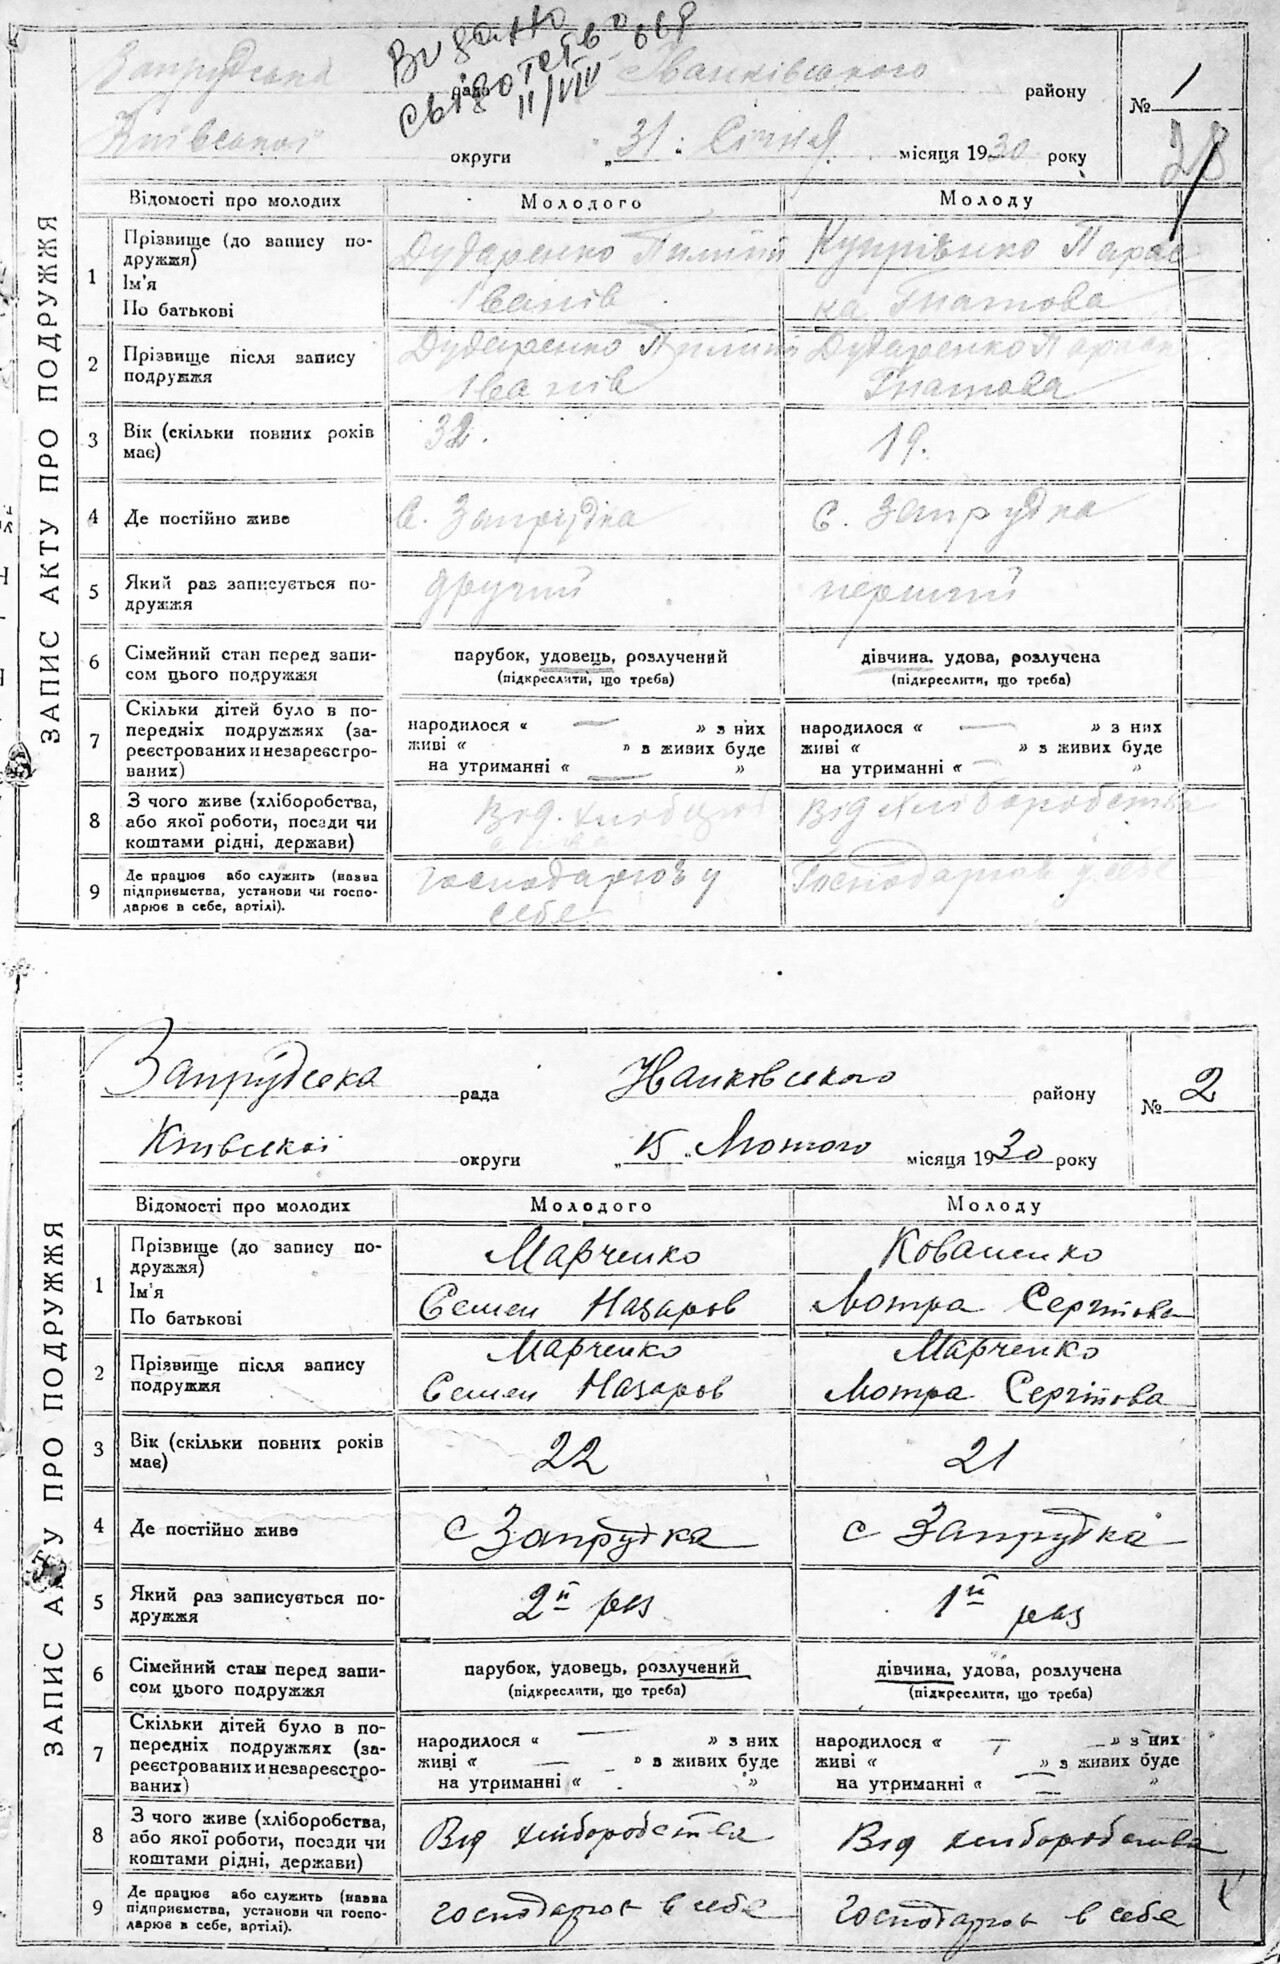 Видано
свідотство
II/VIII
Запрудська рада Іванківського району
№ 1
28
Київської округи „31„ Січня місяця 1930 року
ЗАПИС АКТУ ПРО ПОДРУЖЖЯ
Відомості про молодих Молодого Молоду
1 Прізвище (до запису подружжя)
Ім'я
По батькові
Дударенко Пилип
Іванів
Купрієнко Парас
ка Гнатова
2 Прізвище після запису
подружжя
Дударенко Пилип
Іванів
Дударенко Параск
Гнатова
3 Вік (скільки повних років
має)
32. 19.
4 Де постійно живе с. Запрудка с. Запрудка
5 Який раз записується по-
дружжя
другий перший
6 Сімейний стан перед запи-
сом цього подружжя
парубок, удовець, розлучений
(підкреслити, що треба)
дівчина, удова, розлучена
(підкреслити, що треба)
7 Скільки дітей було в по-
передніх подружжях (за-
реєстрованих и незареєстро-
ваних)
народилося « — » з них
живі « » в живих буде
на утриманні « — »
народилося « — » з них
живі « » в живих буде
на утриманні « — »
8 З чого живе (хліборобства,
або якої роботи, посади чи
коштами рідні, держави)
Від хлібороб
ства
Від хліборобства
9 Де працює або служить (назва
підприємства, установи чи госпо-
дарює в себе, артілі).
Господарює у
себе
Господарює у себе
Запрудська рада Іванковського району
№ 2
Київської округи „15„ Лютого місяця 1930 року
ЗАПИС АКТУ ПРО ПОДРУЖЖЯ
Відомості про молодих Молодого Молоду
1 Прізвище (до запису по-
дружжя)
Ім'я
По батькові
Марченко
Семен Назаров
Коваленко
Мотра Сергіїова
2 Прізвище після запису
подружжя
Марченко
Семен Назаров
Марченко
Мотра Сергіїова
3 Вік (скільки повних років
має)
22 21
4 Де постійно живе с Запрудка с Запрудка
5 Який раз записується по-
дружжя
2й раз 1й раз
6 Сімейний стан перед запи-
сом цього подружжя
парубок, удовець, розлучений
(підкреслити, що треба)
дівчина, удова, розлучена
(підкреслити, що треба)
7 Скільки дітей було в по-
передніх подружжях (за-
реєстрованих и незареєстро-
ваних)
народилося « — » з них
живі « — » в живих буде
на утриманні « »
народилося « — » з них
живі « — » в живих буде
на утриманні « — »
8 З чого живе (хліборобства,
або якої роботи, посади чи
коштами рідні, держави)
Від хліборобства Від хліборобства
9 Де працює або служить (назва
підприємства, установи чи госпо-
дарює в себе, артілі).
господарює в себе господарює в себе